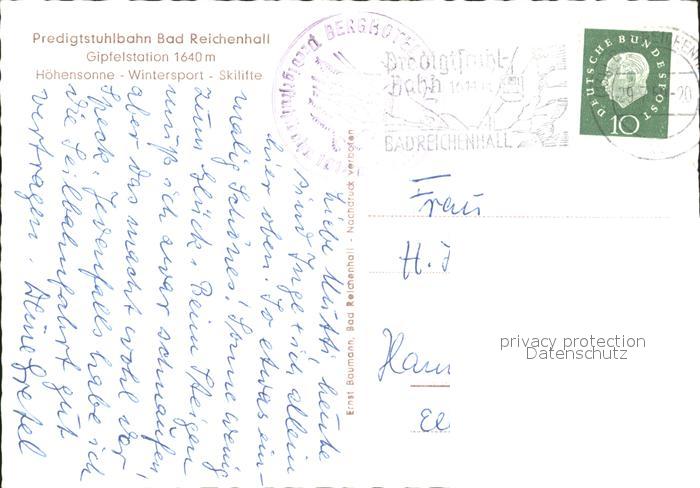 Predigtstuhlbahn Bad Reichenhall
Gipfelstation 1640 m
Höhensonne - Wintersport - Skilifte
Liebe Mutti, heute
sind Inge + ich allein
hier oben. So etwas ein-
malig Schönes! Sonne wenig
zum Glück. Beim Steigen
muß ich zwar schnaufen,
aber das macht wohl der
Speck. Jedenfalls habe ich
die Seilbahnfahrt gut
vertragen. Deine Gretel
Ernst Baumann, Bad Reichenhall - Nachdruck verboten
BERGHOTEL
Predigtstuhl
Bahn
BAD REICHENHALL
DEUTSCHE BUNDESPOST
10
Frau
H.
privacy protection
Datenschutz